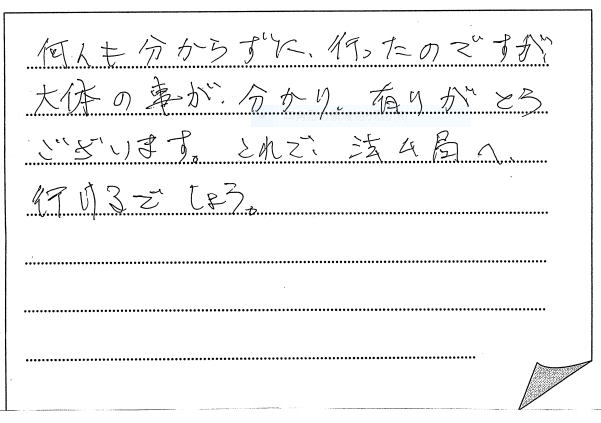 何んも分からずに、行ったのですが、
大体の事が、分かり。有りがとう
ございます。これで、法ム局へ、
行けるでしょう。